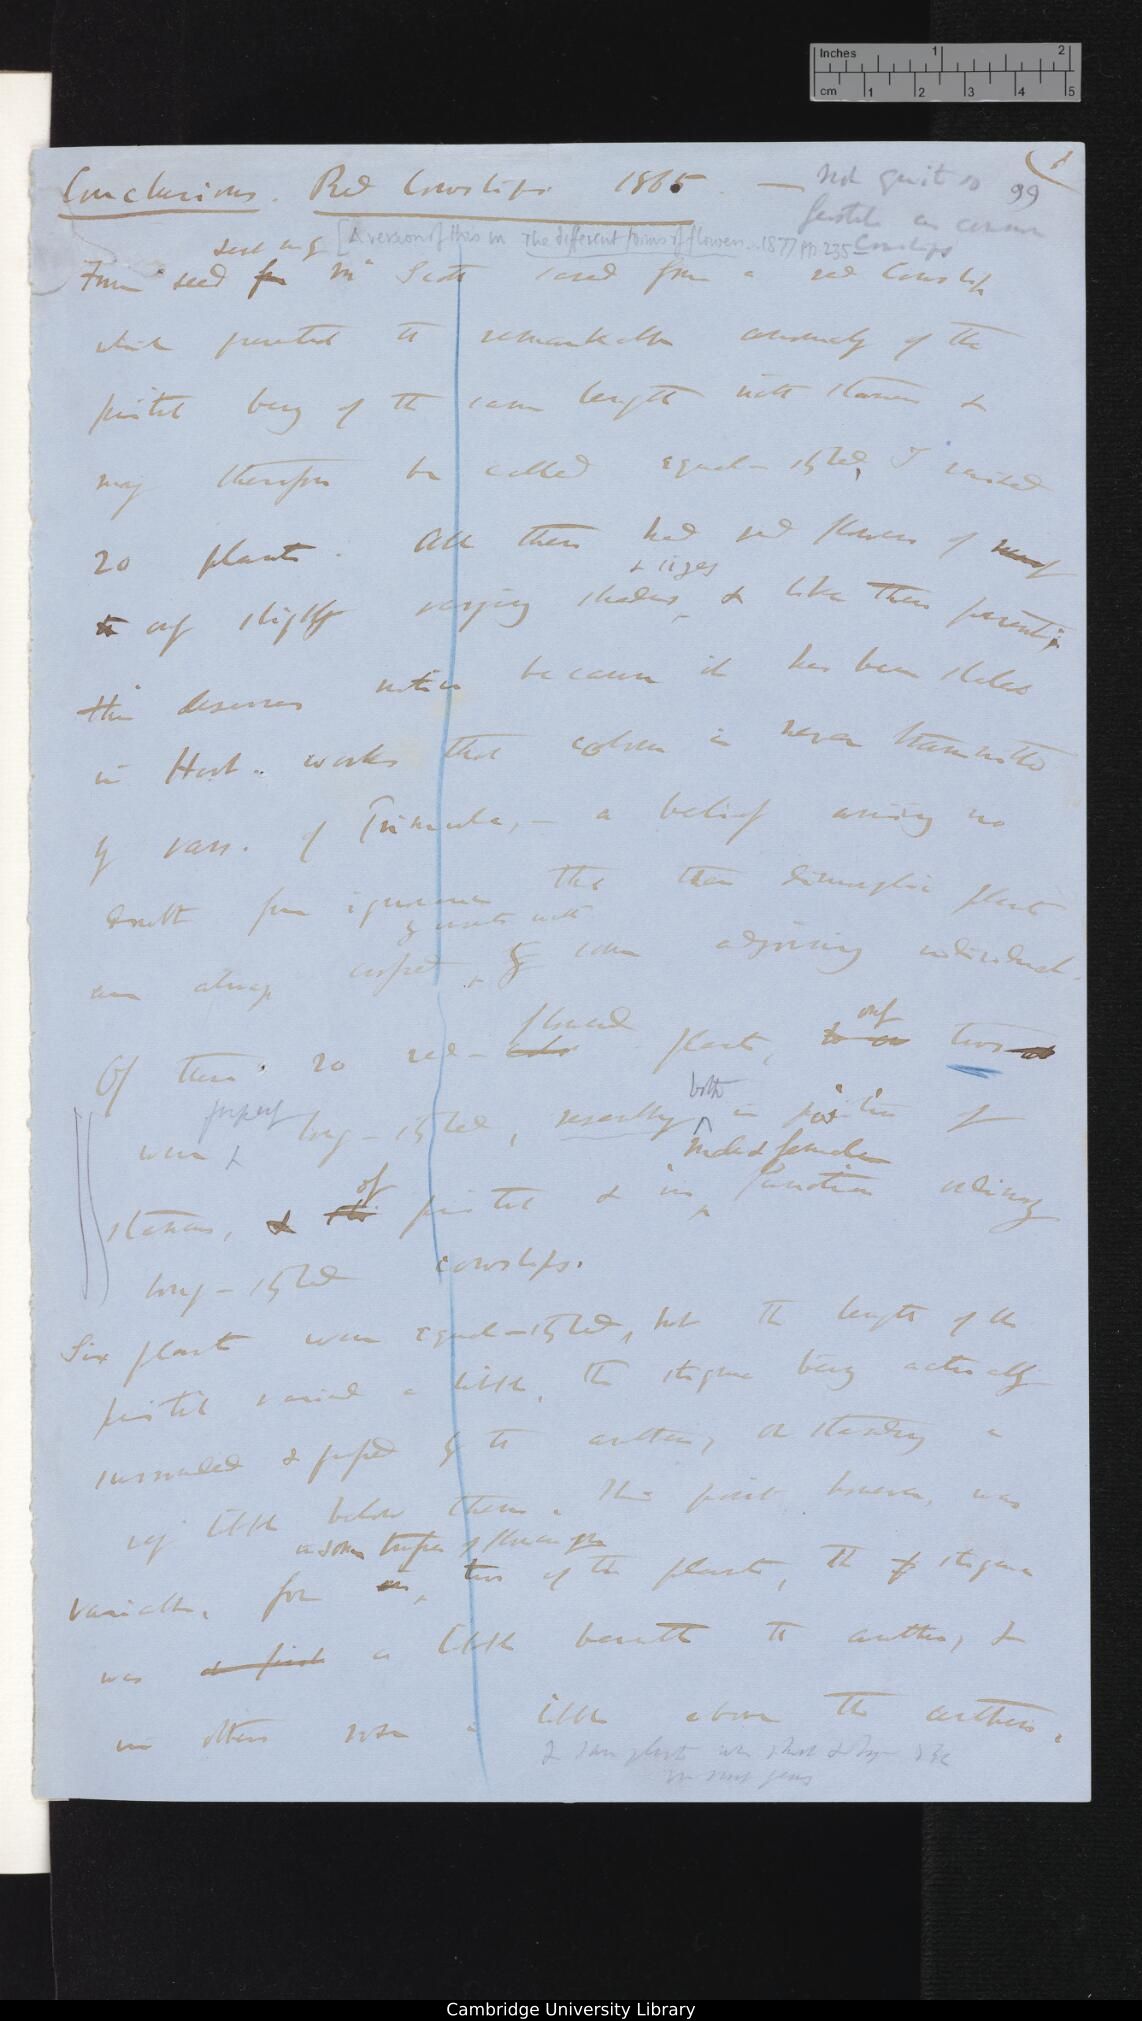 Inches 1 2
cm 1 2 3 4 5
1
99
Conclusions. Red Cowslips 1865. — Not quite so
fertile as common
Cowslips
[A version of this in The different forms of flowers... 1877 pp. 235
sent me by
From seed Mr Scott saved from a red Cowslip
which presented the remarkable anomaly of the
pistil being of the same length with stamens &
may therefore be called equal-styled, I raised
20 plants. All these had red flowers of
& sizes
only slightly varying shades, & like their parents;
this deserves notice because it has been stated
in Hort. works that colour is never transmitted
by vars. of Primula, — a belief arising no
doubt from ignorance that these dimorphic plants
by insects with
are always crossed some adjoining individual.
flowered only
Of these 20 red- plants, two
properly both
were long-styled, resembling in position of
male & female
of
stamens, pistil & in function ordinary
long-styled cowslips.
Six plants were equal-styled, but the length of the
pistil varied a little, the stigma being actually
surrounded & by the anthers, or standing a
very little below them. This point however, was
in some trusses of flowers on
variable, for two of the plants, the stigma
was a little beneath the anthers, &
in others rose a little above the anthers.
& same plant was short & long styled
in next years
Cambridge University Library